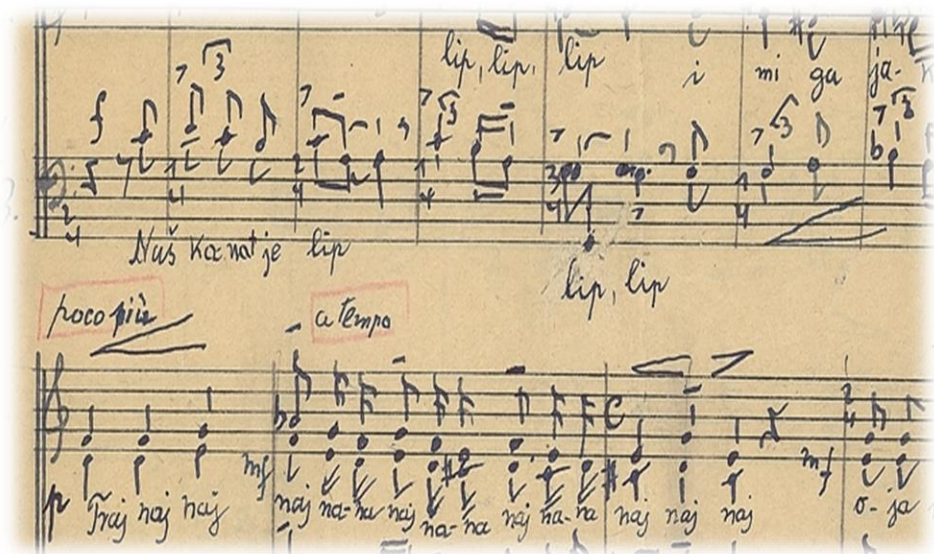 lip, lip, lip i mi ga ja-
Naš kanat je lip
lip, lip
poco più
a tempo
p
mf
mf
Traj naj naj naj na-na naj na-na naj na-na naj naj naj o-ja